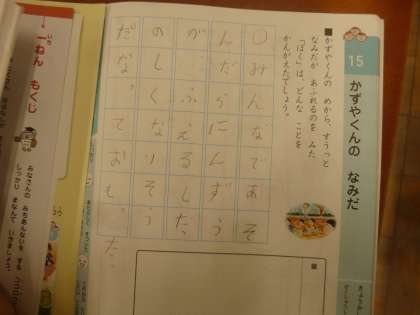 15 かずやくんの なみだ
■かずやくんの めから、すうっと
なみだが あふれるのを みた
「ぼく」は、どんな ことを
かんがえたでしょう。
「みんなであそ
んだらにんずう
がふえるし、た
のしくなりそう
だな。ておもった。
■
一ねん もくじ
みなさんの みちあんないを する
しっかり まなんで いきましょう。